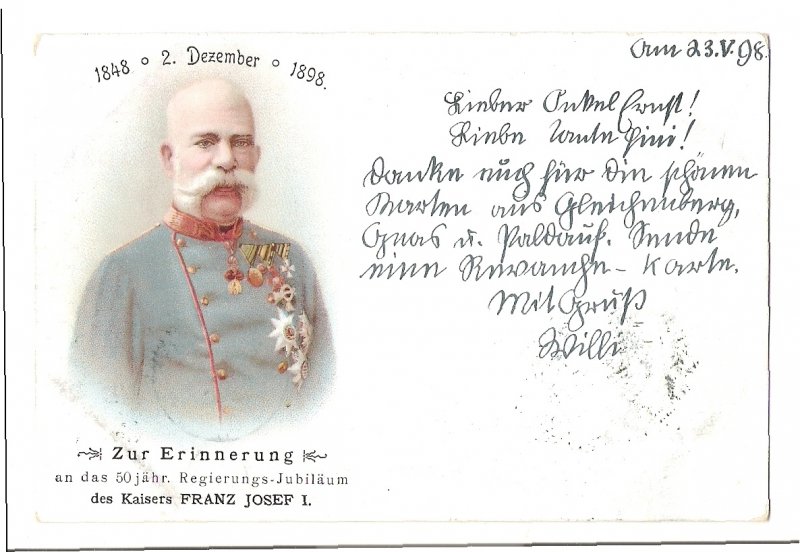 1848 o 2. Dezember o 1898.
Zur Erinnerung
an das 50jähr. Regierungs-Jubiläum
des Kaisers FRANZ JOSEF I.
Am 23.V.98.
Lieber Onkel Ernst!
Liebe Tante Pini!
Danke euch für die schönen
Karten aus Gleichenberg,
Gnas u. Paldauf. Sende
eine Revanche-Karte.
Mit Gruß
Willi